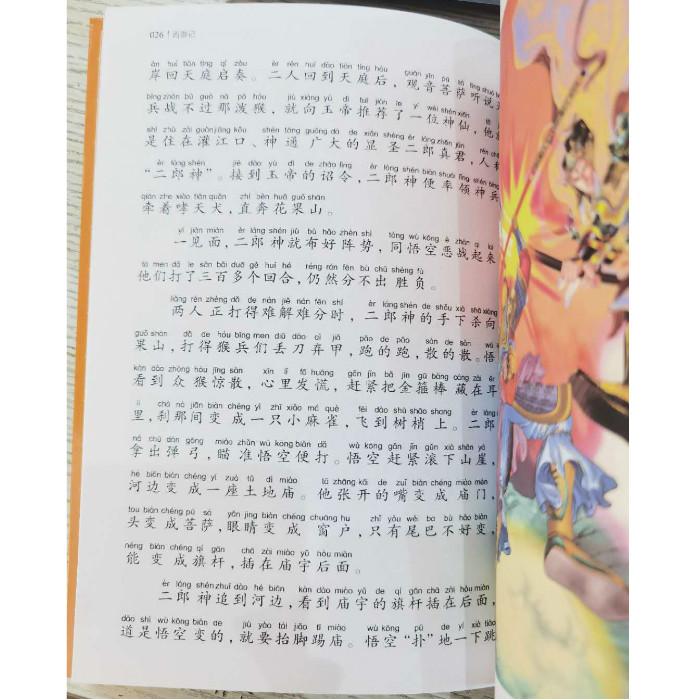 026 西游记
àn huí tiān tíng qǐ zòu èr rén huí dào tiān tíng hòu guān yīn pú sà tīng shuō
岸回天庭启奏。二人回到天庭后，观音菩萨听说
bīng zhàn bú guò nà pō hóu jiù xiàng yù dì tuī jiàn le yí wèi shén xiān
兵战不过那泼猴，就向玉帝推荐了一位神仙，他
shì zhù zài guàn jiāng kǒu shén tōng guǎng dà de xiǎn shèng èr láng zhēn jūn rén
是住在灌江口、神通广大的显圣二郎真君，人
èr láng shén jiē dào yù dì de zhào lìng èr láng shén biàn shuài lǐng shén bīng
“二郎神”。接到玉帝的诏令，二郎神便率领神兵
qiān zhe xiào tiān quǎn zhí bèn huā guǒ shān
牵着哮天犬，直奔花果山。
yí jiàn miàn èr láng shén jiù bù hǎo zhèn shì tóng wù kōng è zhàn qǐ lái
一见面，二郎神就布好阵势，同悟空恶战起来
tā men dǎ le sān bǎi duō gè huí hé réng rán fēn bù chū shèng fù
他们打了三百多个回合，仍然分不出胜负。
liǎng rén zhèng dǎ de nán jiě nán fēn shí èr láng shén de shǒu xià shā xiàng
两人正打得难解难分时，二郎神的手下杀向
guǒ shān dǎ de hóu bīng men diū dāo qì jiǎ pǎo de pǎo sàn de sàn wù
果山，打得猴兵们丢刀弃甲，跑的跑，散的散。悟
kàn dào zhòng hóu jīng sàn xīn lǐ fā huāng gǎn jǐn bǎ jīn gū bàng cáng zài ěr
看到众猴惊散，心里发慌，赶紧把金箍棒藏在耳
lǐ chà nà jiān biàn chéng yì zhī xiǎo má què fēi dào shù shāo shang èr láng
里，刹那间变成一只小麻雀，飞到树梢上。二郎
ná chū dàn gōng miáo zhǔn wù kōng biàn dǎ wù kōng gǎn jǐn gǔn xià shān yá
拿出弹弓，瞄准悟空便打。悟空赶紧滚下山崖，
hé biān biàn chéng yí zuò tǔ dì miào tā zhāng kāi de zuǐ biàn chéng miào mén
河边变成一座土地庙。他张开的嘴变成庙门，
tóu biàn chéng pú sà yǎn jīng biàn chéng chuāng hu zhǐ yǒu wěi ba bù hǎo biàn
头变成菩萨，眼睛变成窗户，只有尾巴不好变，
néng biàn chéng qí gān chā zài miào yǔ hòu miàn
能变成旗杆，插在庙宇后面。
èr láng shén zhuī dào hé biān kàn dào miào yǔ de qí gān chā zài hòu miàn
二郎神追到河边，看到庙宇的旗杆插在后面，
dào shì wù kōng biàn de jiù yào tái jiǎo tī miào wù kōng pū de yí xià tiào
道是悟空变的，就要抬脚踢庙。悟空“扑”地一下跳